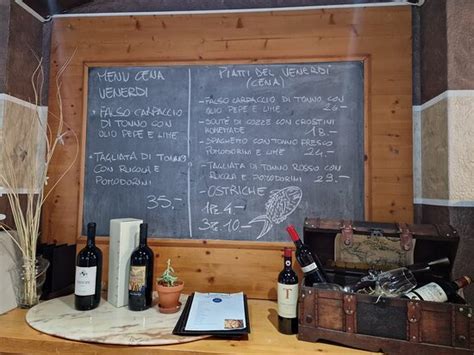 MENU CENA
VENERDI
* FALSO CARPACCIO
DI TONNO CON
OLIO PEPE E LIME
* TAGLIATA DI TONNO
CON RUCOLA E
POMODORINI
35.-
PIATTI DEL VENERDI'
(CENA)
- FALSO CARPACCIO DI TONNO CON
OLIO PEPE E LIME 24.-
- SOUTÉ DI COZZE CON CROSTINI
18.-
- SPAGHETTO CON TONNO FRESCO
POMODORINI E LIME 24.-
- TAGLIATA DI TONNO ROSSO CON
RUCOLA E POMODORINI 29.-
- OSTRICHE
1Pz 4.-
3Pz 10.-
T